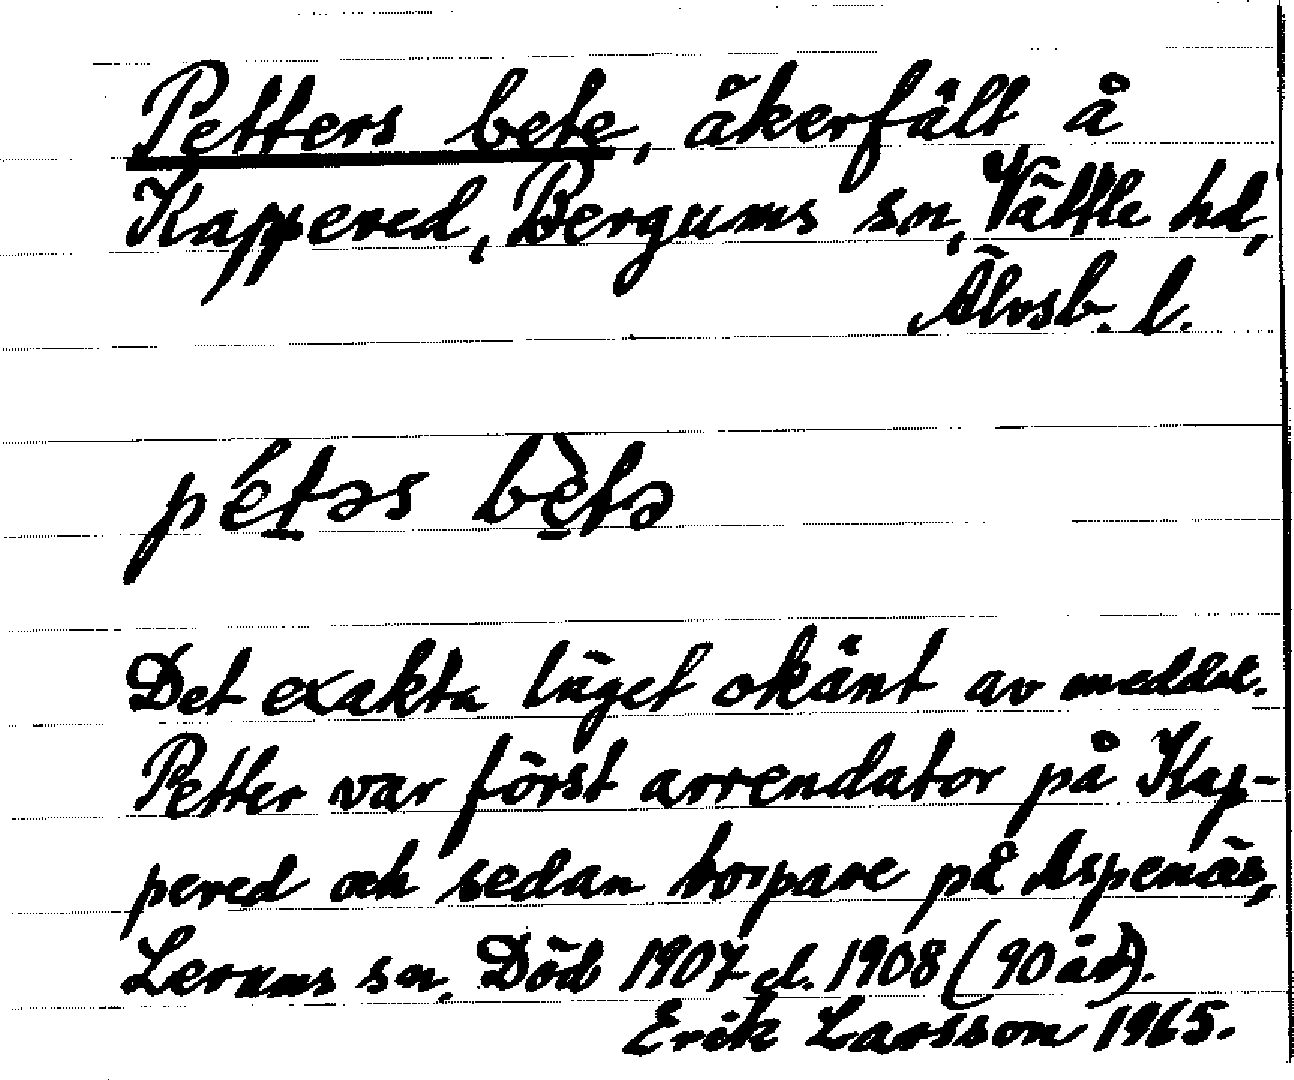 Petters bete, åkerfält å
Kappered, Bergums sn, Vättle hd,
Älvsb. l.
pétəs bètə
Det exakta läget okänt av meddel.
Petter var först arrendator på Kap-
pered och sedan torpare på Aspenäs,
Lerums sn. Död 1907 el. 1908 (90 år).
Erik Larsson 1965.